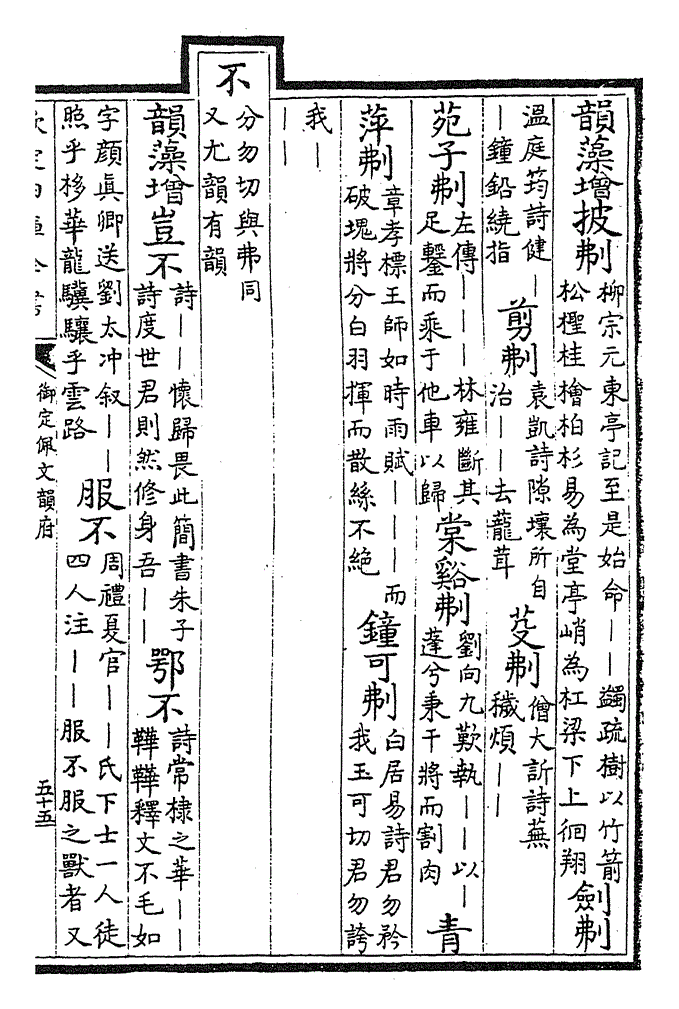 韻藻增披刜柳宗元東亭記至是始命——蠲疏樹以竹箭
松檉桂檜柏杉易為堂亭峭為杠梁下上徊翔劍刜
溫庭筠詩健—
—鐘鉛繞指剪刜袁凱詩隙壤所自
治——去蘢茸芟刜僧大訢詩蕪
穢煩——
苑子刜左傳———林雍斷其
足鑿而乘于他車以歸棠谿刜劉向九歎執——以—
蓬兮秉干將而割肉青
萍刜章孝標王師如時雨賦———而
破塊將分白羽揮而散絲不絶鐘可刜白居易詩君勿矜
我玉可切君勿誇
我—
——
不分勿切與弗同
又尤韻有韻
韻藻增豈不詩——懷歸畏此簡書朱子
詩度世君則然修身吾——鄂不詩常棣之華——
韡韡釋文不毛如
字顔眞卿送劉太冲叙——
照乎栘華龍驥驤乎雲路服不周禮夏官——氏下士一人徒
四人注——服不服之獸者又
欽定四庫全書
御定佩文韻府
五十五